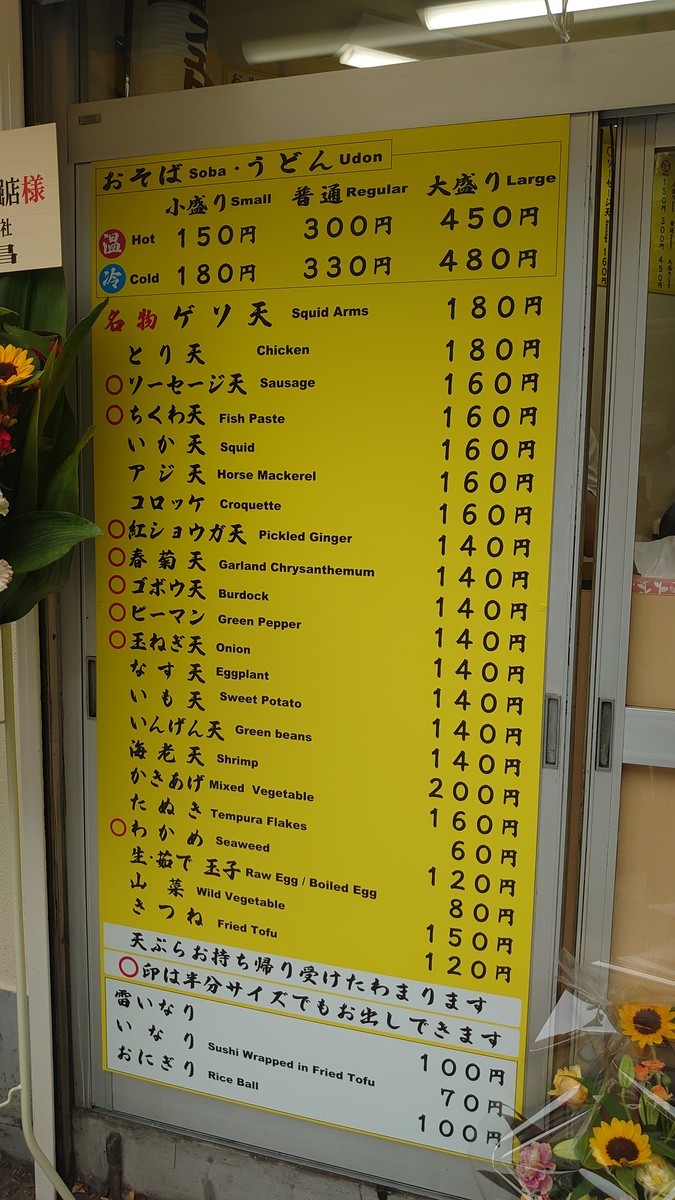 店様
社
昌
おそば Soba・うどん Udon
小盛り Small 普通 Regular 大盛り Large
温 Hot 150円 300円 450円
冷 Cold 180円 330円 480円
名物 ゲソ天 Squid Arms 180円
とり天 Chicken 180円
○ソーセージ天 Sausage 160円
○ちくわ天 Fish Paste 160円
いか天 Squid 160円
アジ天 Horse Mackerel 160円
コロッケ Croquette 160円
○紅ショウガ天 Pickled Ginger 140円
○春菊天 Garland Chrysanthemum 140円
○ゴボウ天 Burdock 140円
○ピーマン Green Pepper 140円
○玉ねぎ天 Onion 140円
なす天 Eggplant 140円
いも天 Sweet Potato 140円
いんげん天 Green beans 140円
海老天 Shrimp 200円
かきあげ Mixed Vegetable 160円
たぬき Tempura Flakes 60円
○わかめ Seaweed 120円
生・茹で玉子 Raw Egg / Boiled Egg 80円
山菜 Wild Vegetable 150円
きつね Fried Tofu 120円
天ぷらお持ち帰り受けたまわります
○印は半分サイズでもお出しできます
雷いなり 100円
いなり Sushi Wrapped in Fried Tofu 70円
おにぎり Rice Ball 100円